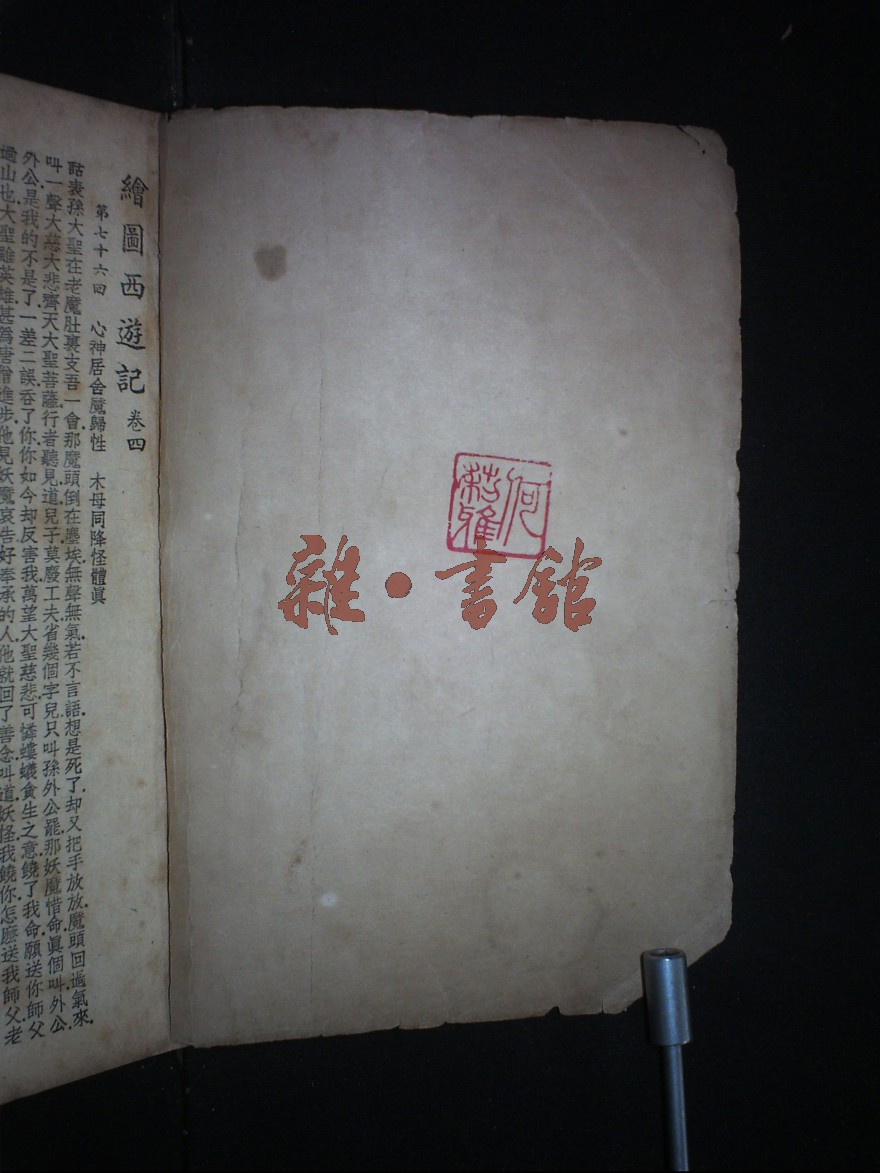 繪圖西遊記 卷四
第七十六回 心神居舍魔歸性 木母同降怪體眞
話表孫大聖在老魔肚裏支吾一會那魔頭倒在塵埃無聲無氣若不言語想是死了却又把手放放魔頭回過氣來
叫一聲大慈大悲齊天大聖菩薩行者聽見道兒子莫廢工夫省幾個字兒只叫孫外公罷那妖魔惜命眞個叫外公
外公是我的不是了一差二誤吞了你你如今却反害我萬望大聖慈悲可憐螻蟻貪生之意饒了我命願送你師父
過山也大聖雖英雄甚爲唐僧進步他見妖魔哀告好奉承的人他就回了善念叫道妖怪我饒你怎麽送我師父老
何
雜·書舘